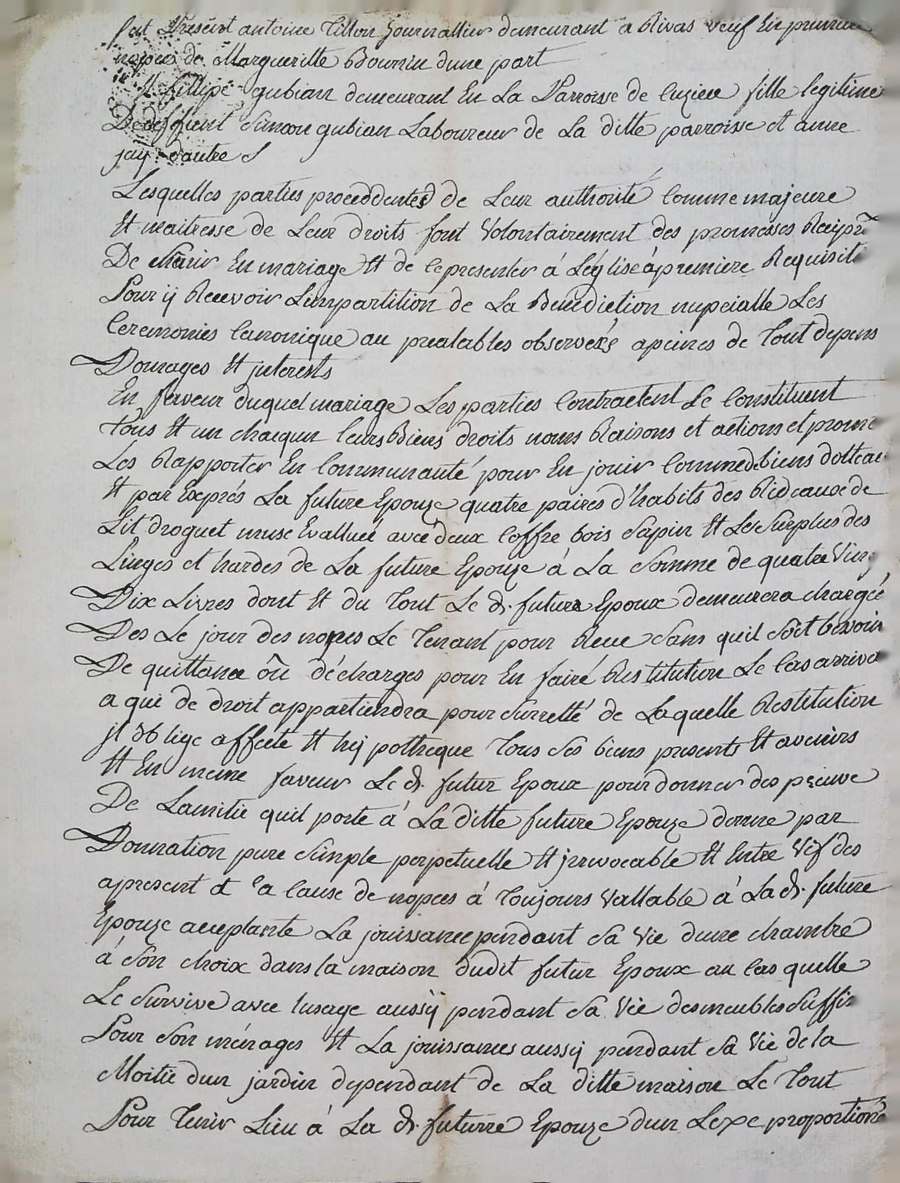 fut Présent antoine Tillon Journallier demeurant a Rivas veuf En premiere
nopces de Margueritte Bournin dune part
Et fillipe gubian demeurant En La Parroisse de Cuzieu fille legitime
De deffunt Simeon gubian Laboureur de La ditte parroisse et anne
jay dautre
Lesquelles parties proceddentes de Leur authorité Comme majeure
Et maitresse de Leur droits font Volontairement des promesses Recipr
De s'unir En mariage Et de se presenter à Léglise à première Requisiti
Pour ij Recevoir Limpartition de La Bénédiction nupcialle Les
Ceremonies Canonique au prealables observées apeines de Tout depens
Domages Et jnterests
En faveur duquel mariage Les parties Contractent Se Constituent
Tous Et un chacqun leurs Biens droits noms Raisons et actions et prome
Les Rapporter En Communauté pour En jouir Comme de biens dotteau
Et par Exprés La future Epouze quatre paires d'habits des Rideaux de
Lit droguet musc Evalluée avec deux Coffre bois Sapin Et Le Surplus des
Linges et hardes de La future Epouze à La Somme de quatre Ving
Dix Livres dont Et du Tout Le d. futur Epoux demeurera chargé
Des Le jour des nopces Le Tenant pour Receu Sans quil Soit besoin
De quittance ôu décharges pour En fairé Restitution Le Cas arriva
a qui de droit appartiendra pour Surretté de Laquelle Restitution
jl oblige affecte Et hijpotheque Tous Ses biens presents Et avenirs
Et En meme faveur Le d. futur Epoux pour donner des preuve
De Lamitié quil porte à La ditte future Epouze donne par
Donnation pure Simple perpetuelle Et jrrevocable Et Entre Vif des
apresent et a cause de nopces à Toujours Vallable à La d. future
Epouze acceptante La jouissance pendant Sa Vie dune chambre
à Son choix dans la maison dudit futur Epoux au Cas quelle
Le Survive avec Lusage aussij pendant Sa Vie des meubles Suffis
Pour Son ménages Et La jouissances aussij pendant Sa Vie de la
Moitié dun jardin dependant de La ditte maison Le Tout
Pour Tenir Lieu à La d. futurre Epouze dun Lexe proportioné